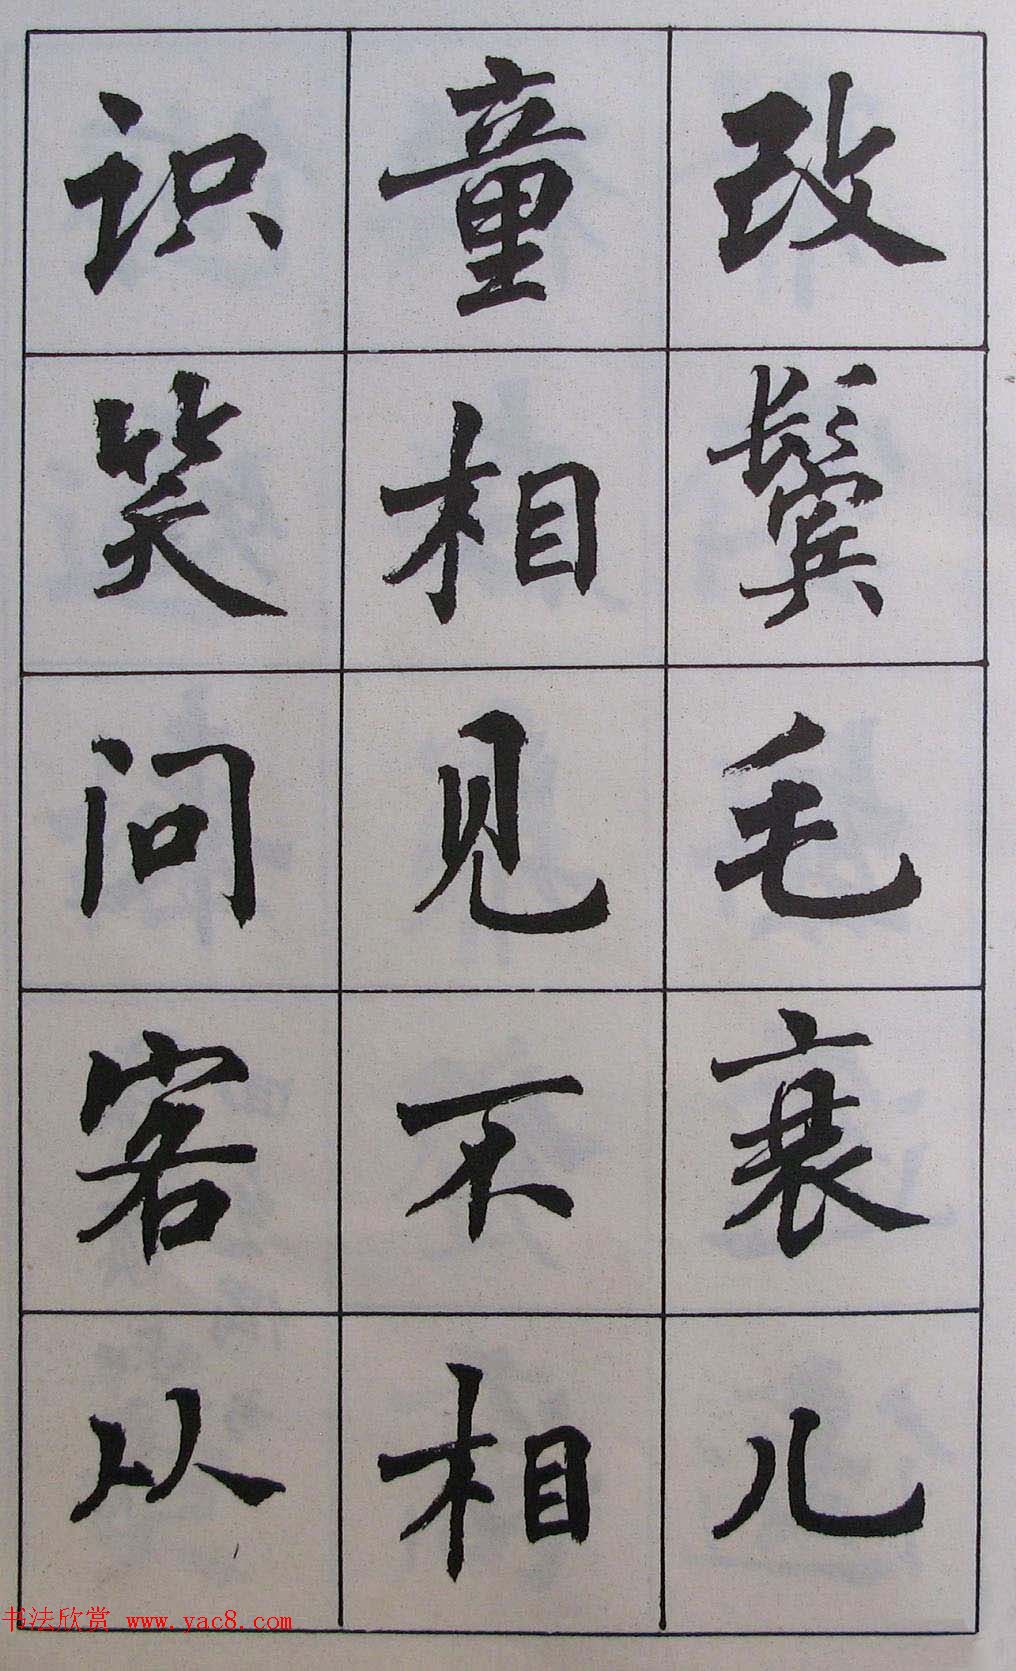 改鬓毛衰儿
童相见不相
识笑问客从
书法欣赏 www.yac8.com